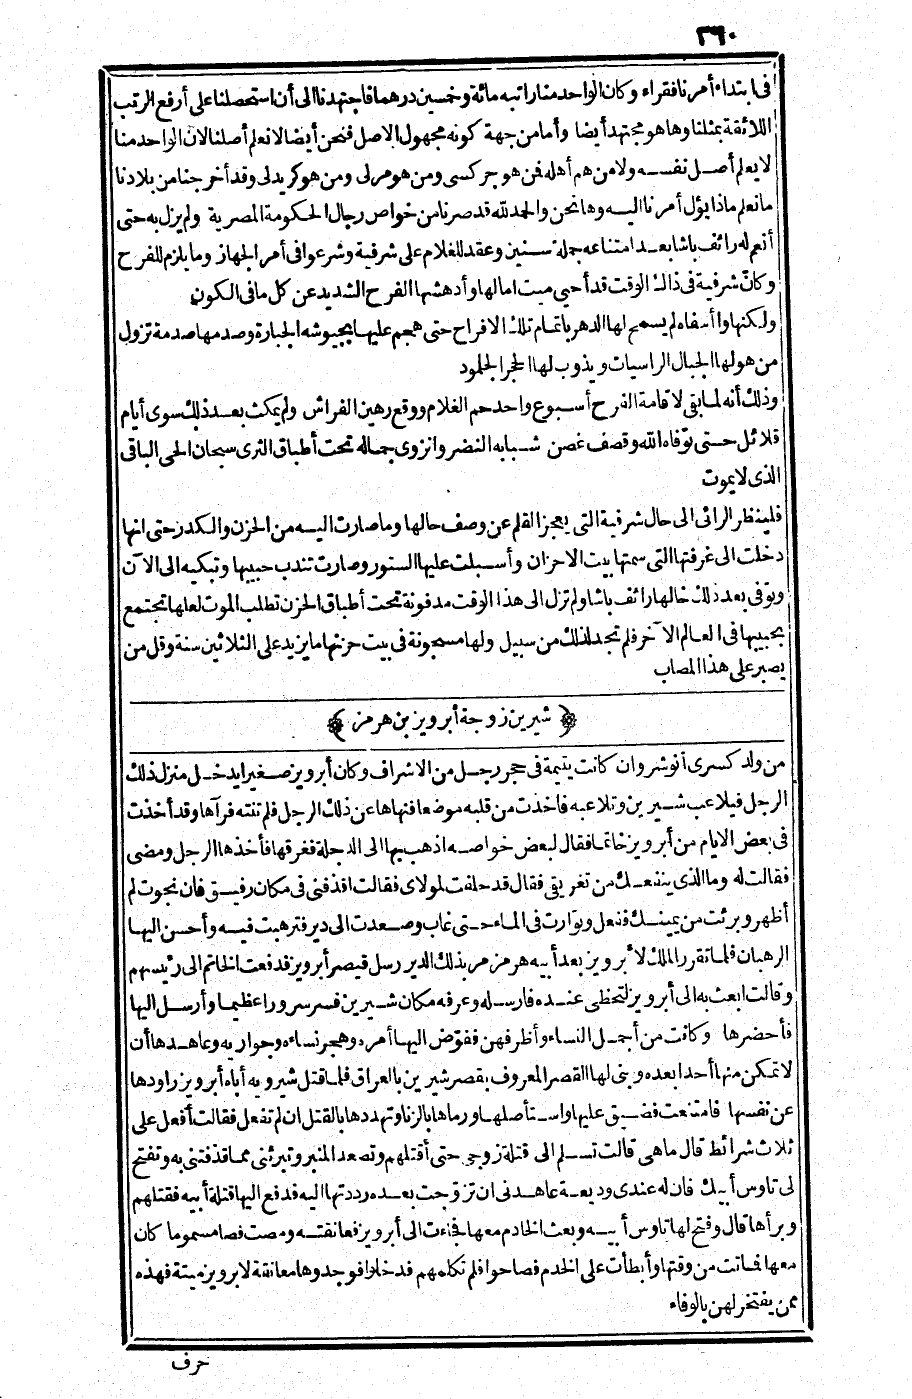 ٢٦٠
فى ابتداء أمرنا فقراء وكان الواحد منا راتبه مائة وخمسين درهما فاجتهدنا الى أن استحصلنا على أرفع الرتب
اللائقة بمثلنا وها هو مجتهد أيضا وأما من جهة كونه مجهول الاصل فنحن أيضا لا نعلم أصلنا لان الواحد منا
لا يعلم أصل نفسه ولا من هم أهله فمن هو جركسى ومن هو مرلى ومن هو كريدلى وقد أخرجنا من بلادنا
ما نعلم ماذا يؤل أمرنا اليه وها نحن والحمد لله قد صرنا من خواص رجال الحكومة المصرية ولم يزل به حتى
أنعم له رائف باشا بعد امتناعه جملة سنين وعقد للغلام على شرفية وشرعوا فى أمر الجهاز وما يلزم للفرح
وكان شرفية فى ذاك الوقت قد أحيى ميت امالها وأدهشها الفرح الشديد عن كل ما فى الكون
ولكنها وا أسفاه لم يسمح لها الدهر باتمام تلك الافراح حتى هجم عليها بجيوشه الجبارة وصدمها صدمة تزول
من هولها الجبال الراسيات ويذوب لها الحجر الجلمود
وذلك أنه لما بقى لاقامة الفرح أسبوع واحد حم الغلام ووقع رهين الفراش ولم يمكث بعد ذلك سوى أيام
قلائل حتى توفاه الله وقصف غصن شبابه النضر وانزوى جماله تحت أطباق الثرى سبحان الحى الباقى
الذى لا يموت
فلينظر الرائى الى حال شرفية التى يعجز القلم عن وصف حالها وما صارت اليه من الحزن والكدر حتى انها
دخلت الى غرفتها التى سمتها بيت الاحزان وأسبلت عليها الستور وصارت تندب حبيبها وتبكيه الى الآن
وتوفى بعد ذلك خالها رائف باشا ولم تزل الى هذا الوقت مدفونة تحت أطباق الحزن تطلب الموت لعلها تجتمع
بحبيبها فى العالم الآخر فلم تجد لذلك من سبيل ولها مسجونة فى بيت حزنها ما يزيد على الثلاثين سنة وقل من
يصبر على هذا المصاب
﴿ شيرين زوجة أبرويز بن هرمز ﴾
من ولد كسرى أنوشروان كانت يتيمة فى حجر رجل من الاشراف وكان أبرويز صغيرا يدخل منزل ذلك
الرجل فيلاعب شيرين وتلاعبه فاخذت من قلبه موضعا فنهاها عن ذلك الرجل فلم تنته فرآها وقد أخذت
فى بعض الايام من أبرويز خاتما فقال لبعض خواصه اذهب بها الى الدجلة فغرقها فأخذها الرجل ومضى
فقالت له وما الذى ينفعك من تغريقى فقال قد حلفت لمولاى فقالت اقذفنى فى مكان رقيق فان نجوت لم
أظهر وبرئت من يمينك ففعل وتوارت فى الماء حتى غاب وصعدت الى دير فترهبت فيه وأحسن اليها
الرهبان فلما تقرر الملك لأبرويز بعد أبيه هرمز مر بذلك الدير رسل قيصر أبرويز فدفعت الخاتم الى رئيسهم
وقالت ابعث به الى أبرويز لتحظى عنده فارسله وعرفه مكان شيرين فسر سرورا عظيما وأرسل اليها
فأحضرها وكانت من أجمل النساء وأظرفهن ففوض اليها أمره وهجر نساءه وجواريه وعاهدها أن
لا تمكن منها أحدا بعده وبنى لها القصر المعروف بقصر شيرين بالعراق فلما قتل شيرويه أباه أبرويز راودها
عن نفسها فامتنعت فضيق عليها واستأصلها ورماها بالزنا وتهددها بالقتل ان لم تفعل فقالت أفعل على
ثلاث شرائط قال ما هى قالت تسلم الى قتلة زوجى حتى أقتلهم وتصعد المنبر وتبرئنى مما قذفتنى به وتفتح
لى تاوس أبيك فان له عندى وديعة عاهدنى ان تزوجت بعده رددتها اليه فدفع اليها قتلة أبيه فقتلهم
وبرأها قال وفتح لها تاوس أبيه وبعث الخادم معها فجاءت الى أبرويز فعانقته ومصت فصا مسموما كان
معها فماتت من وقتها وأبطأت على الخدم فصاحوا فلم تكلمهم فدخلوا فوجدوها معانقة لابرويز ميتة فهذه
ممن يفتخر لهن بالوفاء
حرف